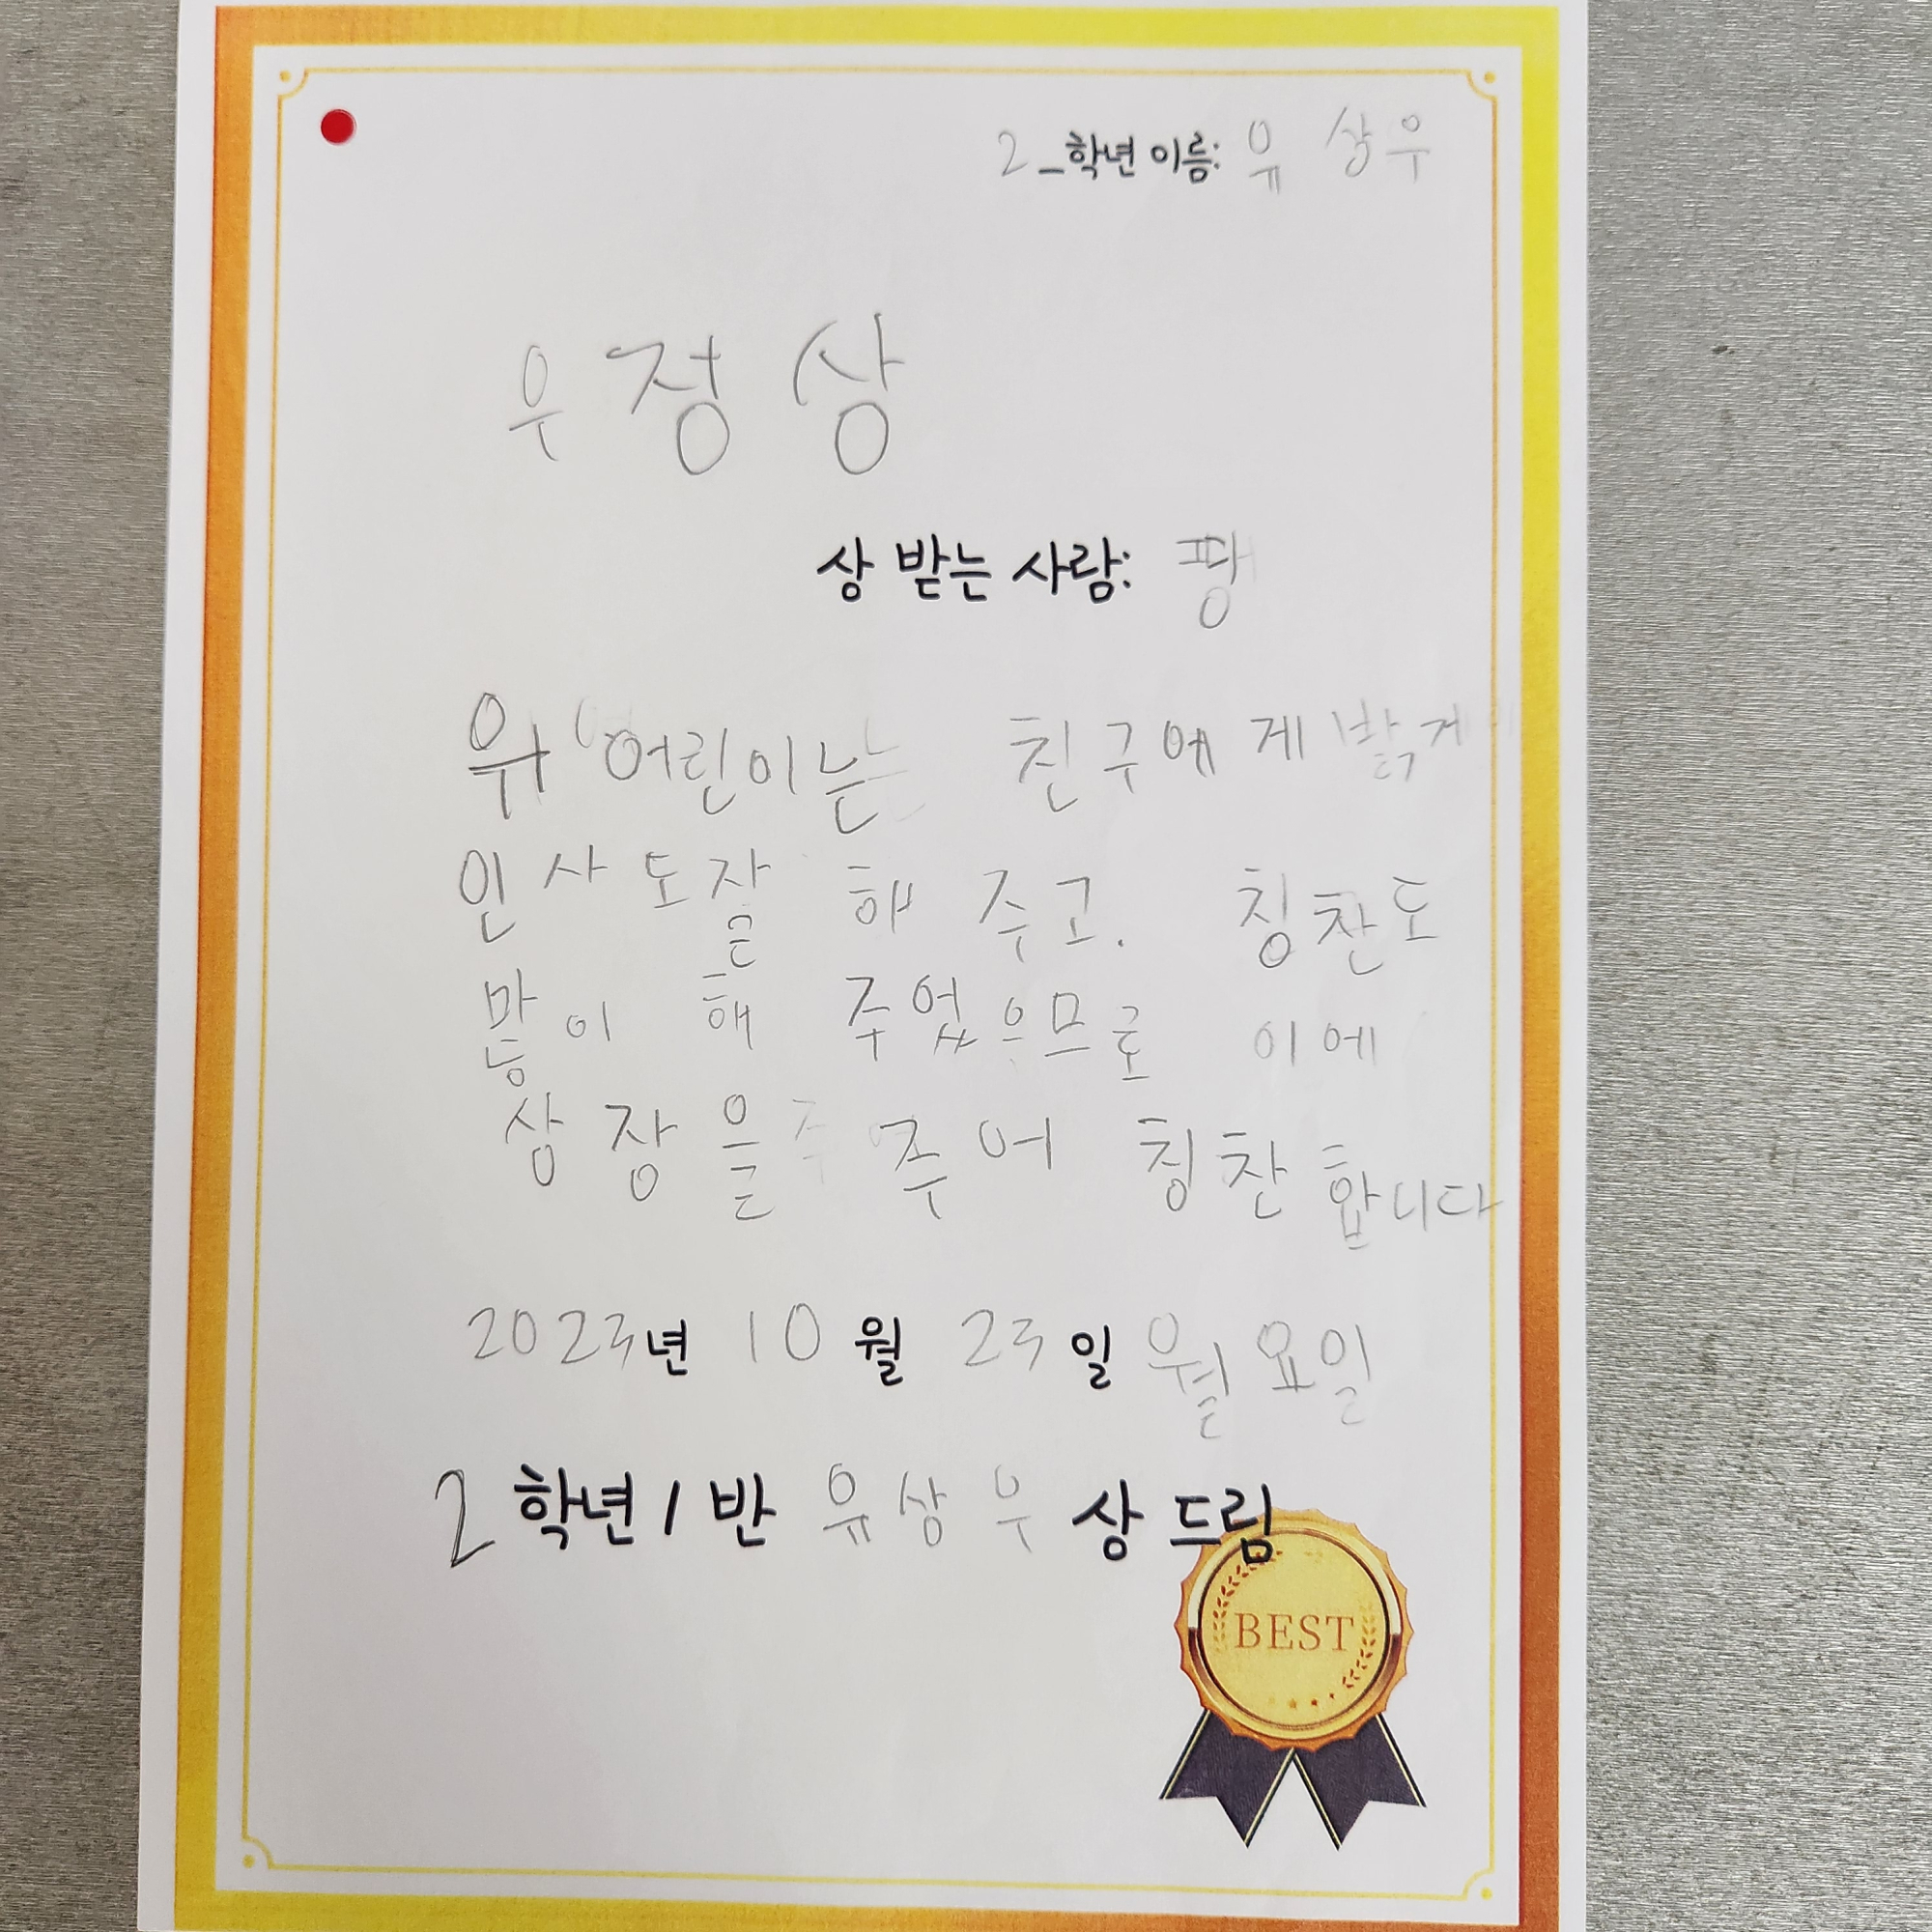 2_학년 이름: 유상우
우정상
상 받는 사람: 팡
위 어린이는 친구에게 밝게
인사도 잘 해 주고. 칭찬도
많이 해 주었으므로 이에
상장을 주어 칭찬합니다
2023년 10월 23일 월요일
2학년 1반 유상우 상 드림
BEST